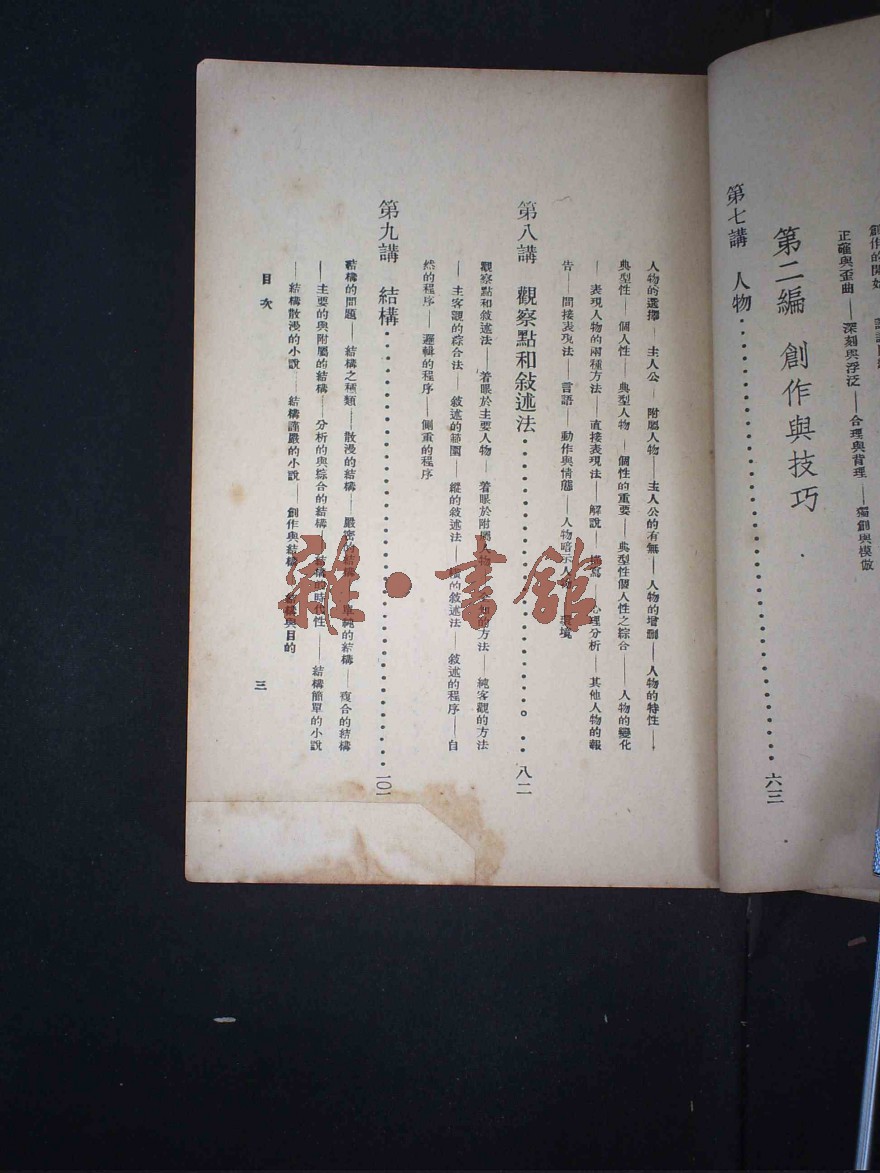 正確與歪曲——深刻與浮泛——合理與背理——獨創與模倣
第二編 創作與技巧
第七講 人物……………………六三
人物的選擇——主人公——附屬人物——主人公的有無——人物的增刪——人物的特性——
典型性——個人性——典型人物——個性的重要——典型性個人性之綜合——人物的變化
——表現人物的兩種方法——直接表現法——解說——描寫——心理分析——其他人物的報
告——間接表現法——言語——動作與情態——人物暗示人物——環境
第八講 觀察點和敍述法……………………八二
觀察點和敍述法——着眼於主要人物——着眼於附屬人物——的方法——純客觀的方法
——主客觀的綜合法——敍述的範圍——縱的敍述法——橫的敍述法——敍述的程序——自
然的程序——邏輯的程序——側重的程序
第九講 結構……………………一〇一
結構的問題——結構之種類——散漫的結構——嚴密的結構——單純的結構——複合的結構
——主要的與附屬的結構——分析的與綜合的結構——結構的時代性——結構簡單的小說
——結構散漫的小說——結構謹嚴的小說——創作與結構——結構與目的
目次
三
雜·書館